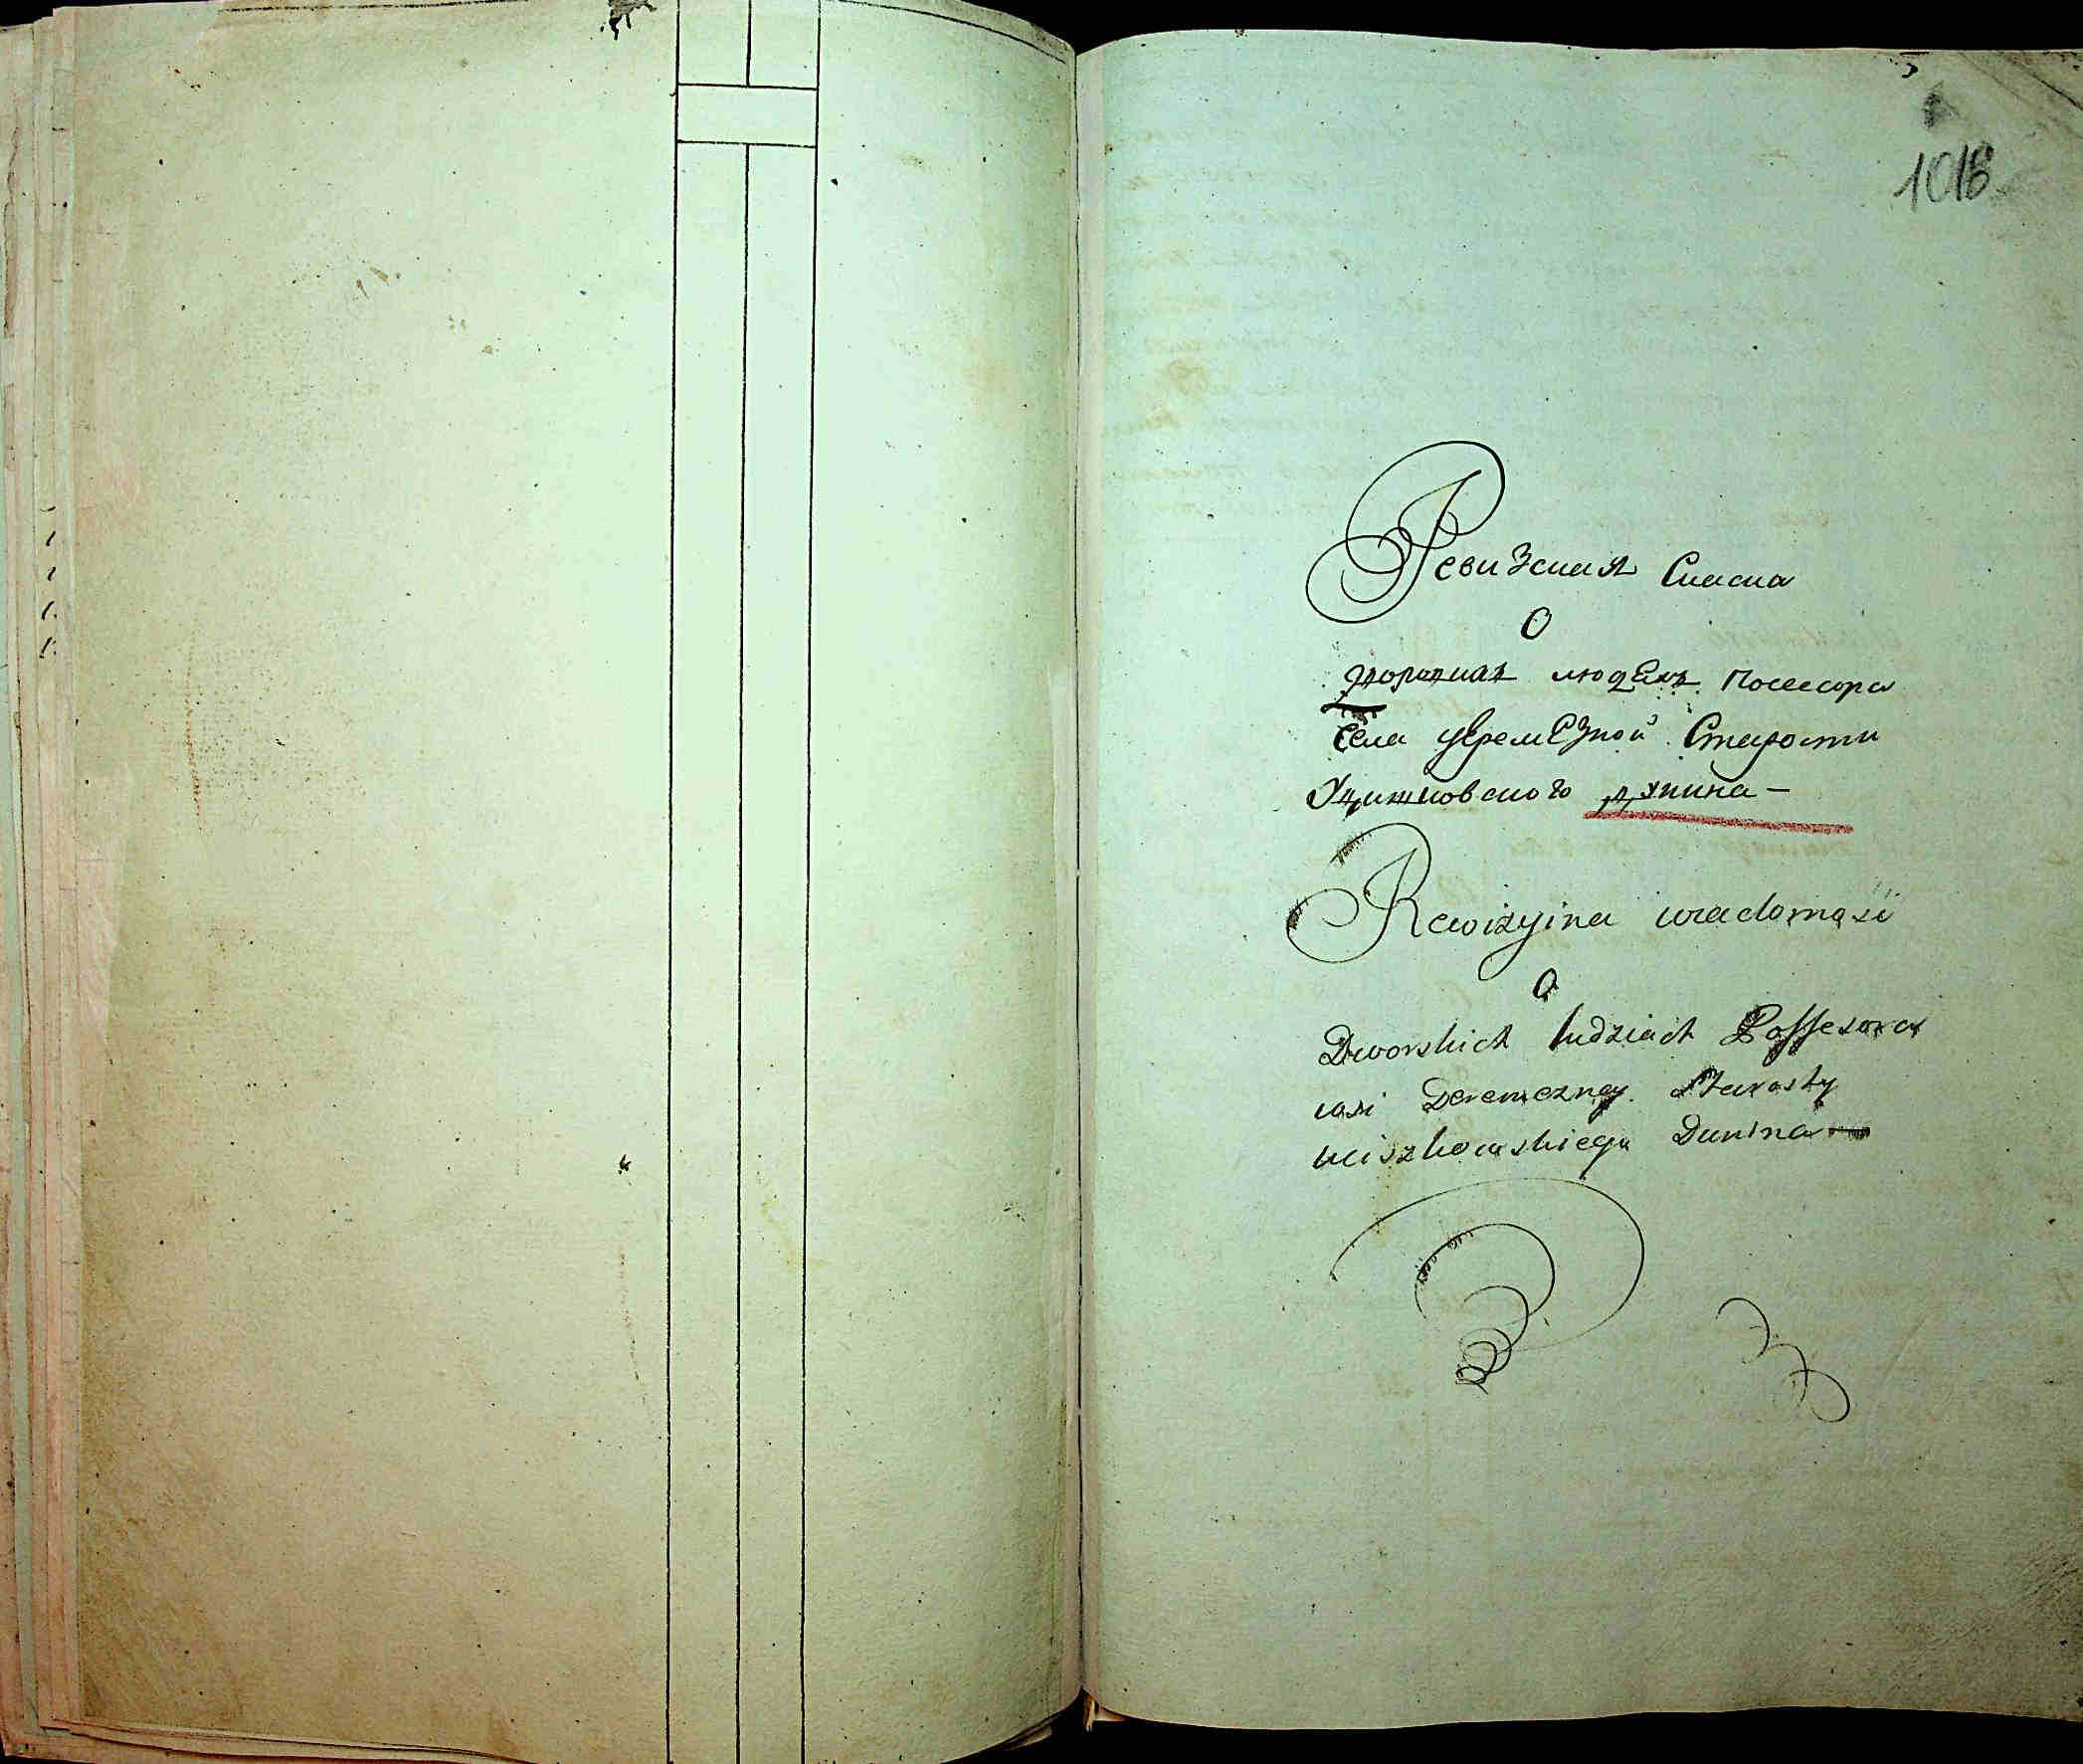 1018
Ревизская Сказка
О
дворовых людехъ посессора
села деремЕзной Старости
Уцишковского дунина —
Rewizyina wiadomość
O
Dworskich ludziach Possesora
wsi Deremezney Starosty
Uciszkowskiego Dunina —